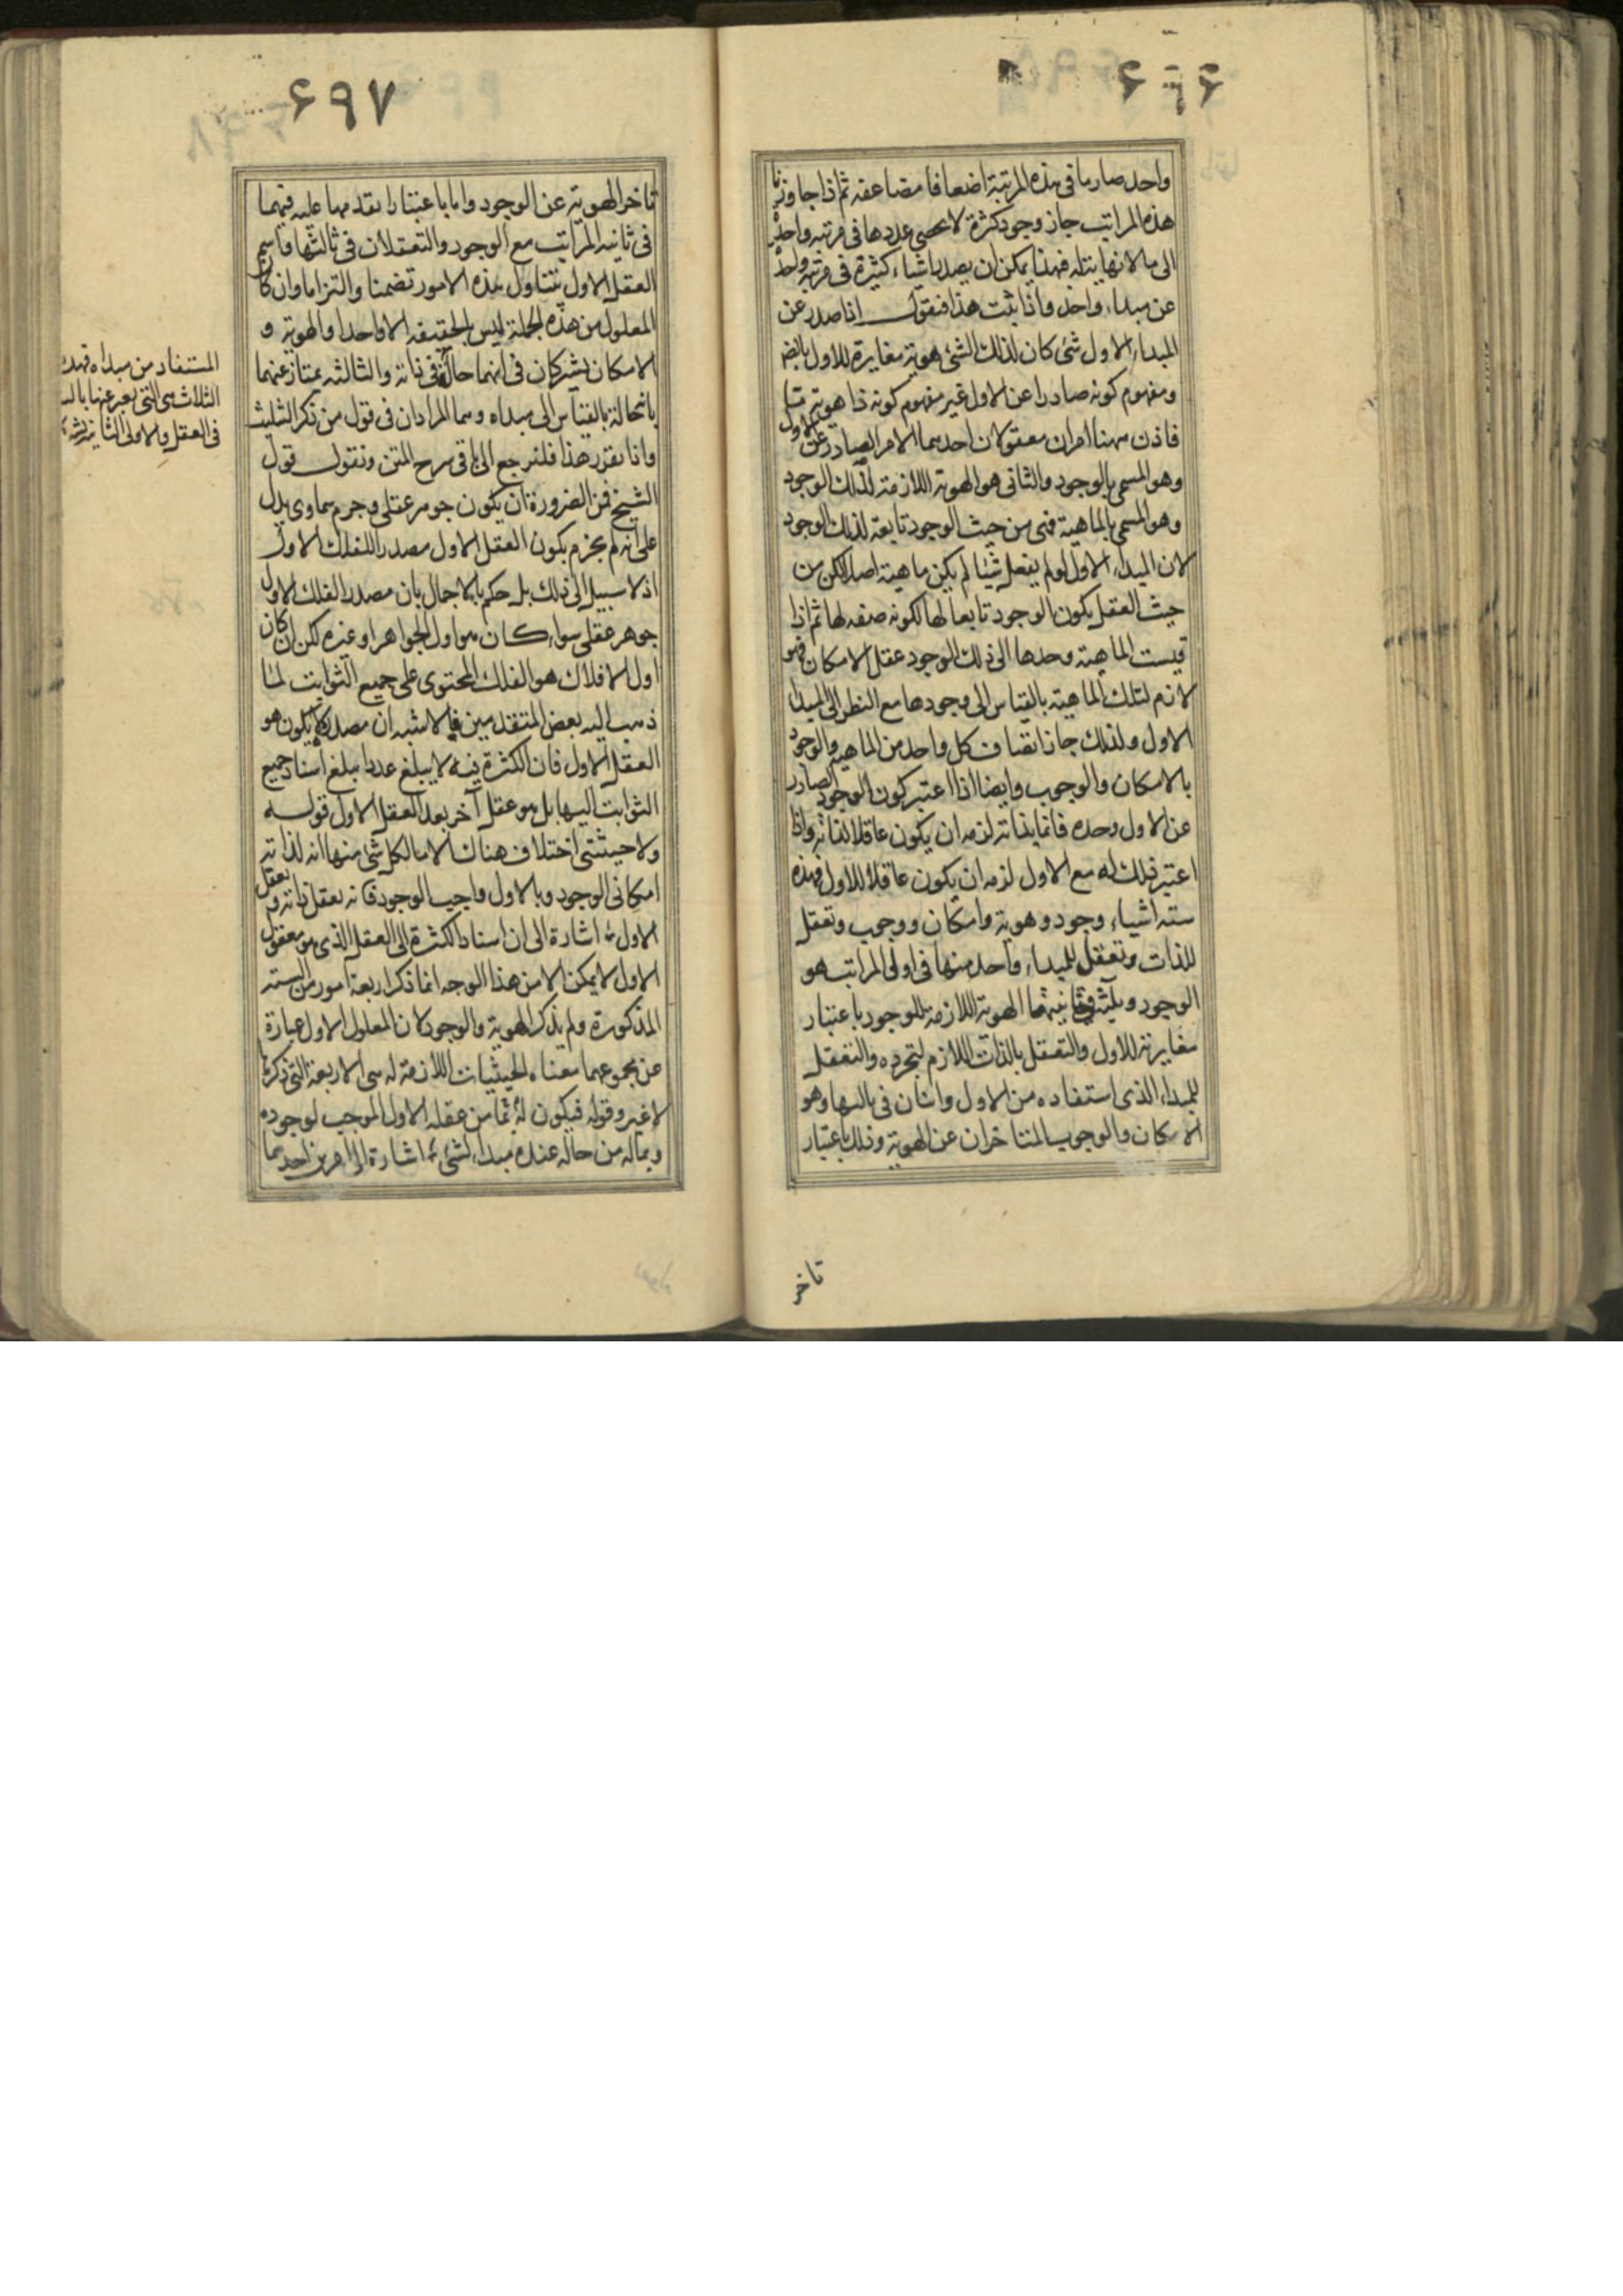 ۶۹۶
واحد صار ما فی هذه المرتبة اضعافا مضاعفه ثم اذا جاوزنا
هذه المراتب جاز وجود کثرة لا یحصی عددها فی مرتبه واحدة
الی ما لا نهایة له فهذا یمکن ان یصدر اشیاء کثیرة فی مرتبه واحدة
عن مبداء واحد واذا ثبت هذا فنقول اذا صدر عن
المبداء الاول شئ کان لذلک الشئ هویة مغایرة للاول بالضرورة
ومفهوم کونه صادرا عن الاول غیر مفهوم کونه ذا هویة ما
فاذن ههنا امران معقولان احدهما الامر الصادر عن الاول
وهو المسمی بالوجود والثانی هو الهویة اللازمة لذلک الوجود
وهو المسمی بالماهیة فهی من حیث الوجود تابعة لذلک الوجود
لان المبداء الاول لو لم یفعل شیئا لم یکن ماهیة اصلا لکن من
حیث العقل یکون الوجود تابعا لها لکونه صفه لها ثم اذا
قیست الماهیة وحدها الی ذلک الوجود عقل الامکان فهو
لازم لتلک الماهیة بالقیاس الی وجودها مع النظر الی المبداء
الاول ولذلک جاز اتصاف کل واحد من الماهیة والوجود
بالامکان والوجوب وایضا اذا اعتبر کون الوجود الصادر
عن الاول وحده قائما بذاته لزمه ان یکون عاقلا لذاته واذا
اعتبر ذلک له مع الاول لزمه ان یکون عاقلا للاول فهذه
سته اشیاء وجود وهویة وامکان ووجوب وتعقل
للذات وتعقل للمبداء واحد منها فی اولی المراتب هو
الوجود وثلثة فی ثانیتها الهویة اللازمة للوجود باعتبار
مغایرته للاول والتعقل بالذات اللازم لتجرده والتعقل
للمبداء الذی استفاده من الاول واثنان فی ثالثها وهو
الامکان والوجوب المتاخران عن الهویة وذلک باعتبار
تاخر
۶۹۷
تاخر الهویة عن الوجود واما باعتبار تقدمها علیه فهما
فی ثانیه المراتب مع الوجود والتعقلان فی ثالثها فاسم
العقل الاول یتناول هذه الامور تضمنا والتزاما وان کان
المعلول من هذه الجملة لیس بالحقیقه الا واحدا والهویة و
الامکان یشترکان فی انهما حاله فی ذاته والثالثه یمتاز عنهما
بانها حالة بالقیاس الی مبداه وهما المرادان فی قول من ذکر التثلیث
واذا تقرر هذا فلنرجع الی باقی شرح المتن ونقول قول
الشیخ فمن الضرورة ان یکون جوهر عقلی وجرم سماوی یدل
علی انه لم یجزم بکون العقل الاول مصدرا للفلک الاول
اذ لا سبیل الی ذلک بل حکم بالاجمال بان مصدر الفلک الاول
جوهر عقلی سواء کان هو اول الجواهر او غیره لکن ان کان
اول الافلاک هو الفلک المحتوی علی جمیع الثوابت لما
ذهب الیه بعض المتقدمین فالاشبه ان مصدره لا یکون هو
العقل الاول فان الکثرة فیه لا یبلغ عددا یبلغ اسناد جمیع
الثوابت الیها بل هو عقل آخر بعد العقل الاول قوله
ولا حیثیتی اختلاف هناک الا ما لکل شئ منها انه لذاته
امکانی الوجود وبالاول واجب الوجود فانه یعقل ذاته ویعقل
الاول اشارة الی ان اسناد الکثرة الی العقل الذی هو معقول
الاول لا یمکن الا من هذا الوجه انما ذکر اربعة امور من السته
المذکورة ولم یذکر الهویة والوجود لان المعلول الاول عبارة
عن مجموعهما معناه الحیثیات اللازمة له هی الاربعة التی ذکرها
لا غیر وقوله فیکون له ما من عقله الاول الموجب لوجوده
وبما له من حاله عنده مبداء لشئ اشارة الی امرین احدهما
المستفاد من مبداه فهذه
الثلاث هی التی یعبر عنها
فی العقل والاولی الثانیه